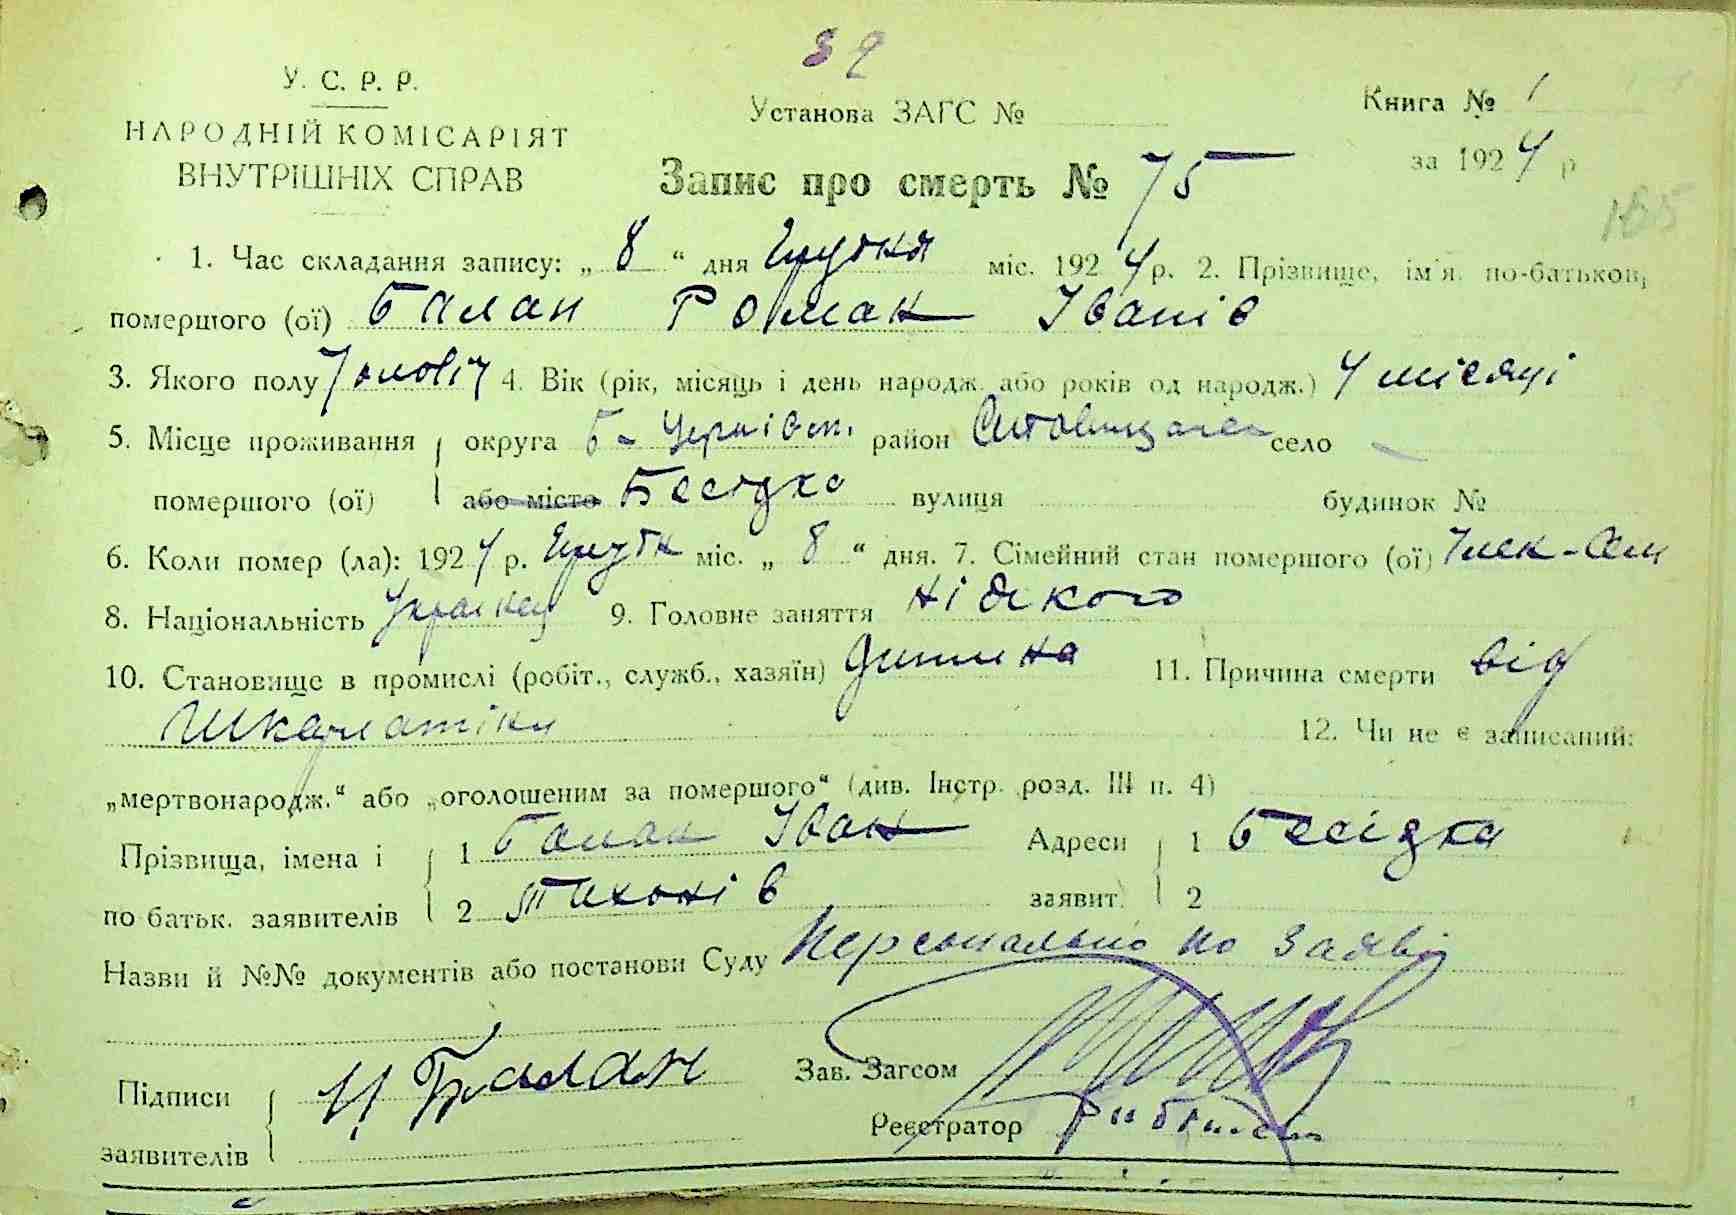 39
У. С. Р. Р.
НАРОДНІЙ КОМІСАРІЯТ
ВНУТРІШНІХ СПРАВ
Установа ЗАГС №
Книга № 1
за 1924 р
Запис про смерть № 75
185
1. Час складання запису: „ 8 “ дня Грудня міс. 1924 р. 2. Прізвище, ім'я, по-батьков,
помершого (ої) Балан Роман Іванів
3. Якого полу Чоловіч 4. Вік (рік, місяць і день народж. або років од народж.) 4 місяці
5. Місце проживання округа Б-Церківськ. район село -
помершого (ої) або місто Бесідка вулиця будинок №
6. Коли помер (ла): 1924 р. Грудн міс. „ 8 “ дня. 7. Сімейний стан помершого (ої) Член-Сем
8. Національність Українец 9. Головне заняття ніякого
10. Становище в промислі (робіт., служб., хазяїн) дитина 11. Причина смерти від
Шкарлатіни 12. Чи не є записаний:
„мертвонародж.“ або „оголошеним за помершого“ (див. Інстр. розд. III п. 4)
Прізвища, імена і 1 Балан Іван Адреси 1 Бесідка
по батьк. заявителів 2 Тихонів заявит. 2
Назви й №№ документів або постанови Суду Персонально по заяві
Підписи И Балан Зав. Загсом
заявителів Реєстратор